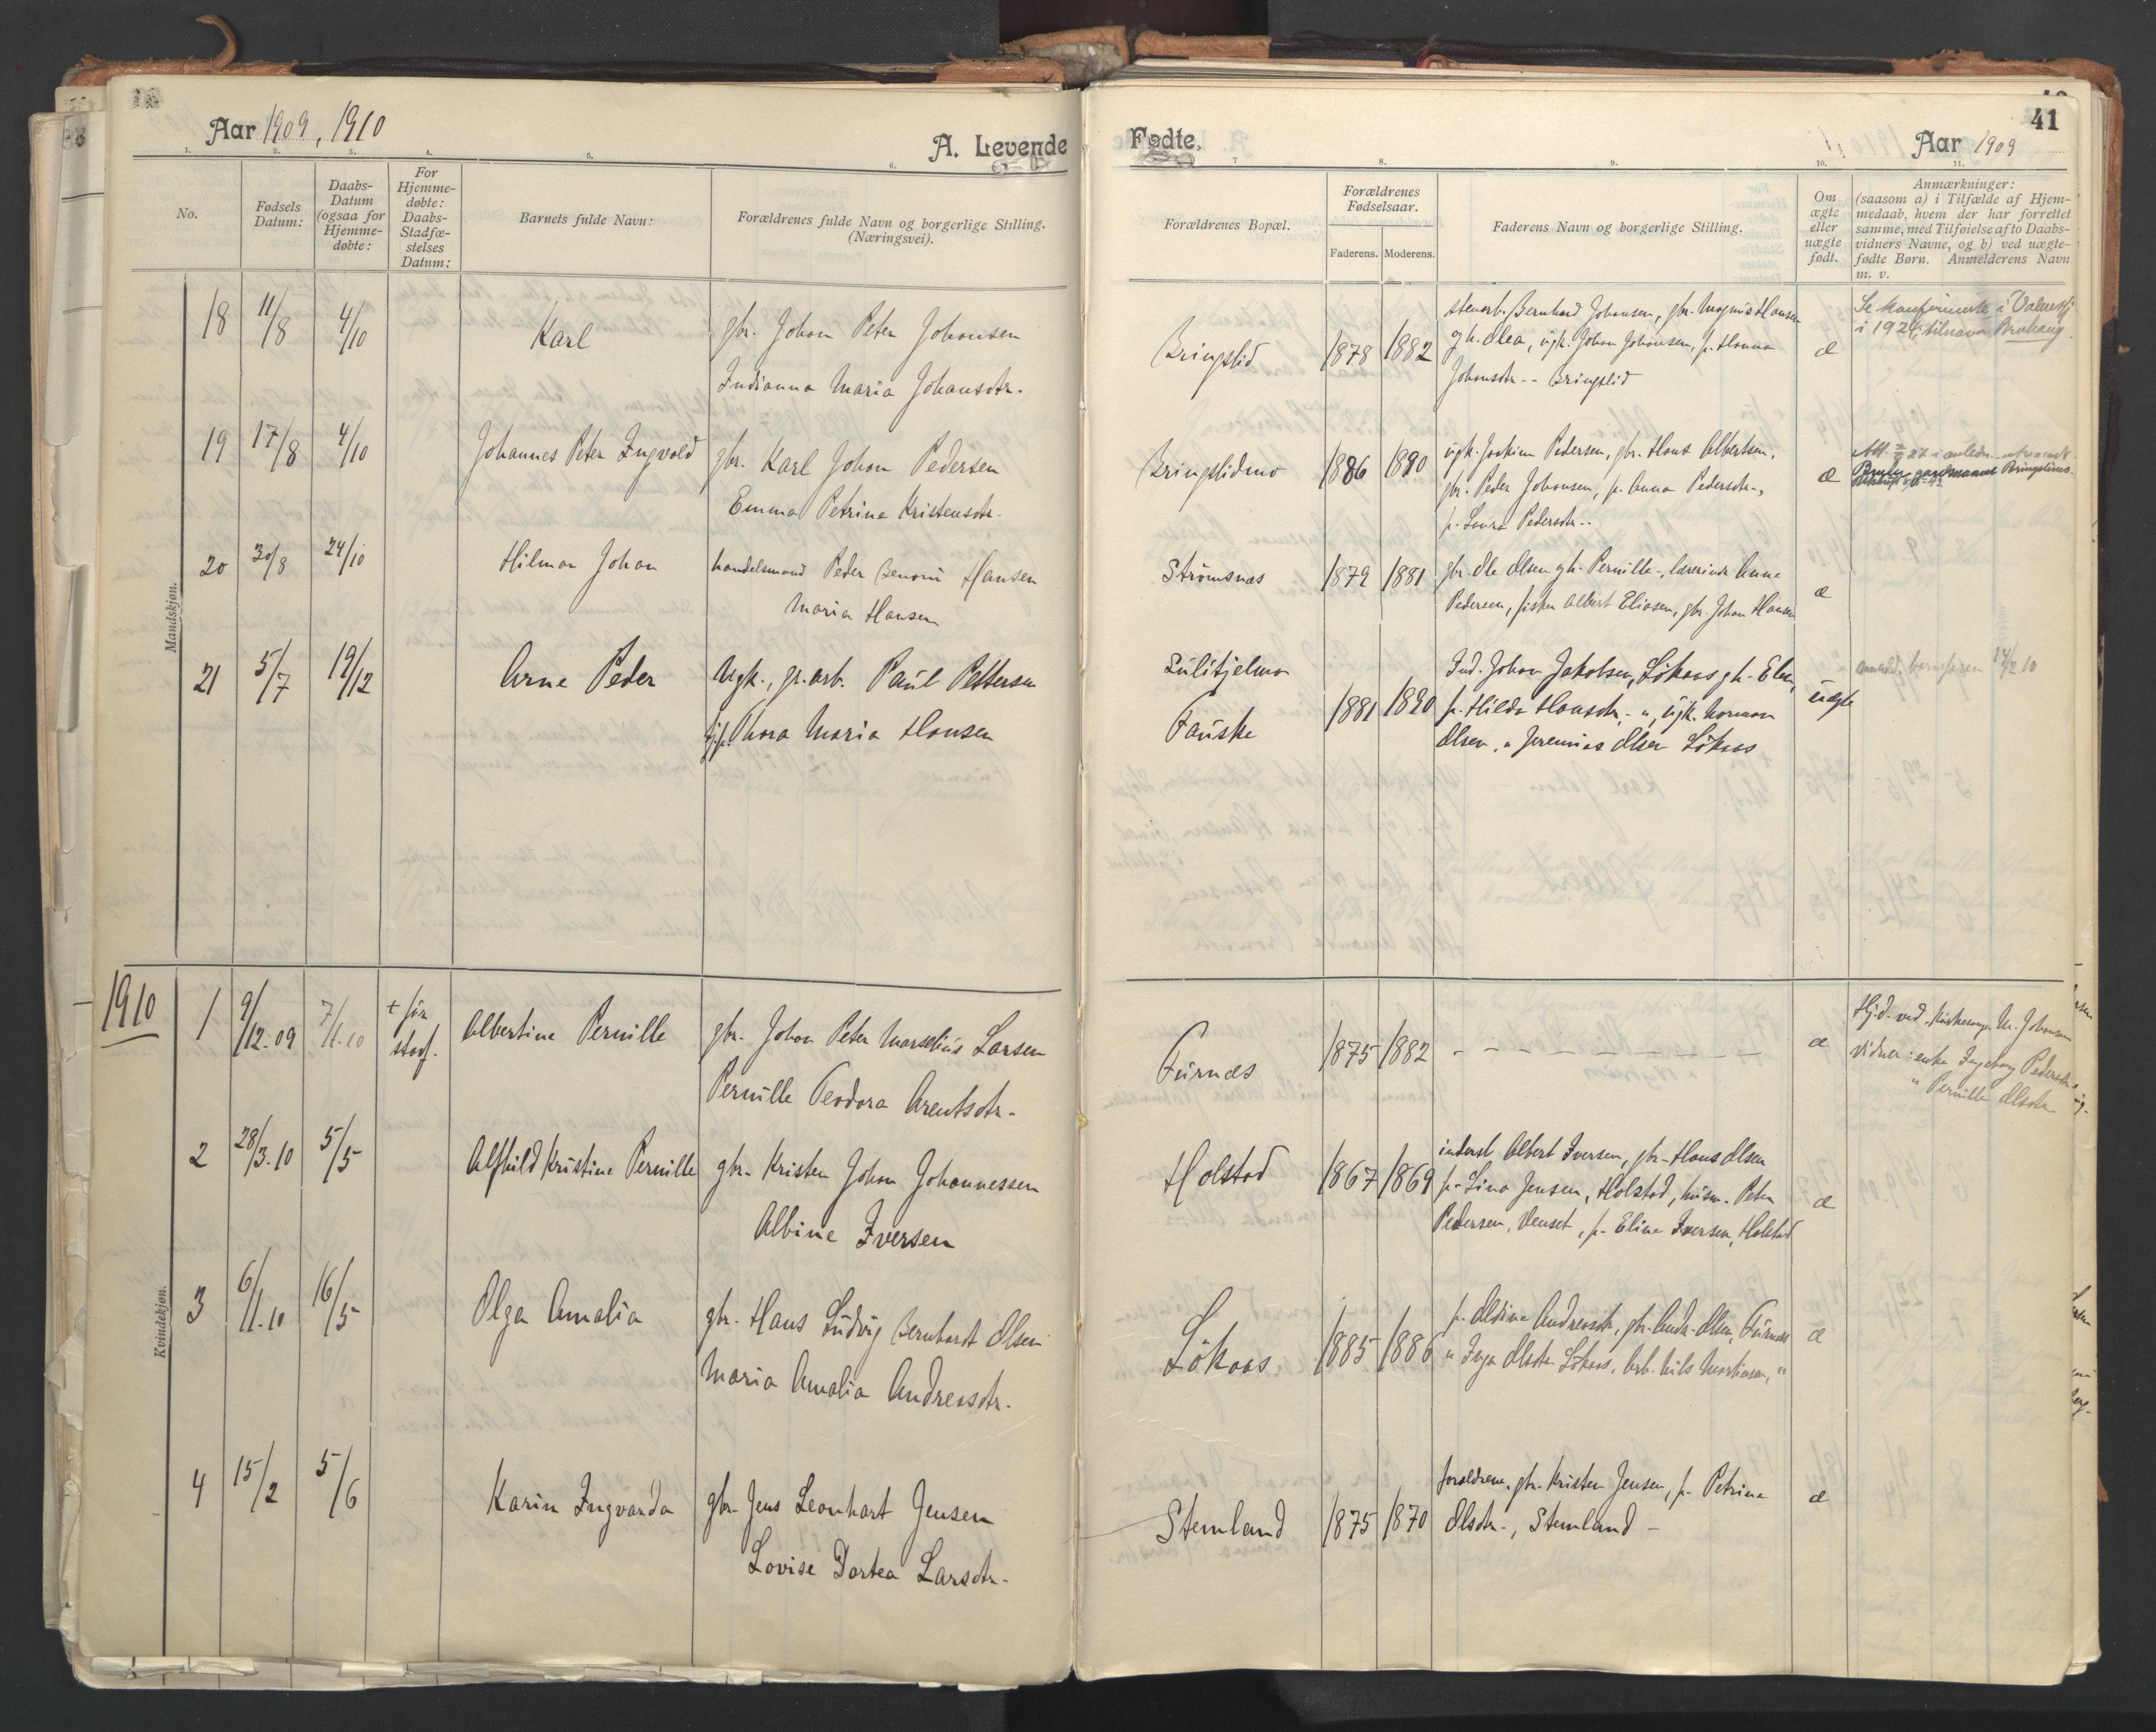 Aar 1909, 1910
A. Levende
Fødte.
Aar 1909
41
1. 2. 3. 4. 5. 6. 7 8. 9. 10. 11.
No.
Fødsels Datum:
Daabs-Datum (ogsaa for Hjemme-døbte:
For Hjemme-døbte: Daabs-Stadfæ-stelses Datum:
Barnets fulde Navn:
Forældrenes fulde Navn og borgerlige Stilling. (Næringsvei).
Forældrenes Bopæl.
Forældrenes Fødselsaar.
Faderens. Moderens.
Faderens Navn og borgerlige Stilling.
Om ægte eller uægte født.
Anmærkninger:
(saasom a) i Tilfælde af Hjem-
medaab, hvem der har forrettet
samme, med Tilføielse af to Daabs-
vidners Navne, og b) ved uægte-
fødte Børn. Anmelderens Navn
m. v.
Mandskjøn.
18 11/8 4/10 Karl gbr. Johan Peter Johansen
Indianna Maria Johansdtr.
Bringslid 1878 1882
stenarb. Bernhard Johansen, gbr. Magnus Hansen
gh. Olea, ugk. Johan Johansen, p. Hanna
Johansdtr -- Bringslid
æ
Se konfirmerte i
i 1924, tilnavn
19 17/8 4/10 Johannes Peter Ingvold gbr. Karl Johan Pedersen
Emma Petrine Kristensdtr.
Bringslidmo 1886 1890
ugk. Joakim Pedersen, gbr. Hans Albertsen,
gbr. Peder Johansen, p. Anna Pedersdtr-,
p. Laura Pedersdtr--
æ
Att. 27 i anledn.
20 30/8 24/10 Hilmar Johan handelsmand Peder Benoni Hansen
Maria Hansen
Strömsnæs 1879 1881
gbr. Ole Olsen gh. Pernille-, lærerinde Anne
Pedersen, fisker Albert Eliasen, gbr. Johan Hansen
æ
21 5/7 19/12 Arne Peder Ugk., gr.arb. Paul Pettersen
Thora Maria Hansen
Sulitjelma
Fauske
1881 1890
Ind. Johan Jakobsen, Lökaas gh- Elen,
p. Hilda Hansdtr.- ", ugk. Norman
Olsen, " Jeremias Olsen Lökaas
uægte
anmeld. barnefaren 14/2 10
1910
Kvindekjøn.
1 9/12-09 7/1-10 + før stadf. Albertine Pernille gbr. Johan Peter Marselius Larsen
Pernille Teodora Arentsdtr-
Furnes 1875 1882 - - - - - - - - - æ
Hjd- ved Kirkesanger M. Johansen
Vidner: enke Ingeborg Pedersdtr
" Pernille Olsdtr
2 28/3-10 5/5 Alfhild Kristine Pernille gbr- Kristen Johan Johannessen
Albine Iversen
Holstad 1867 1869
inderst Albert Iversen, gbr- Hans Olsen
p- Lina Jensen, Holstad, husm. Peter
Pedersen, Venset, p- Eline Iversen, Holstad
æ
3 6/1-10 16/5 Olga Amalia gbr- Hans Ludvig Bernhardt Olsen
Maria Amalia Andreasdtr-
Lökaas 1885 1886
p. Aldine Andreasdtr, gbr- Andr. Olsen, Furnes
" Inga Olsdtr Lökaas, Arb- Nils Martinsen, "
æ
4 15/2 5/6 Karin Ingvarda gbr- Jens Leonhart Jensen
Lovise Dortea Larsdtr-
Stemland 1875 1870
forældrene, gbr. Kristen Jensen, p- Petrine
Olsdtr-, Stemland -
æ